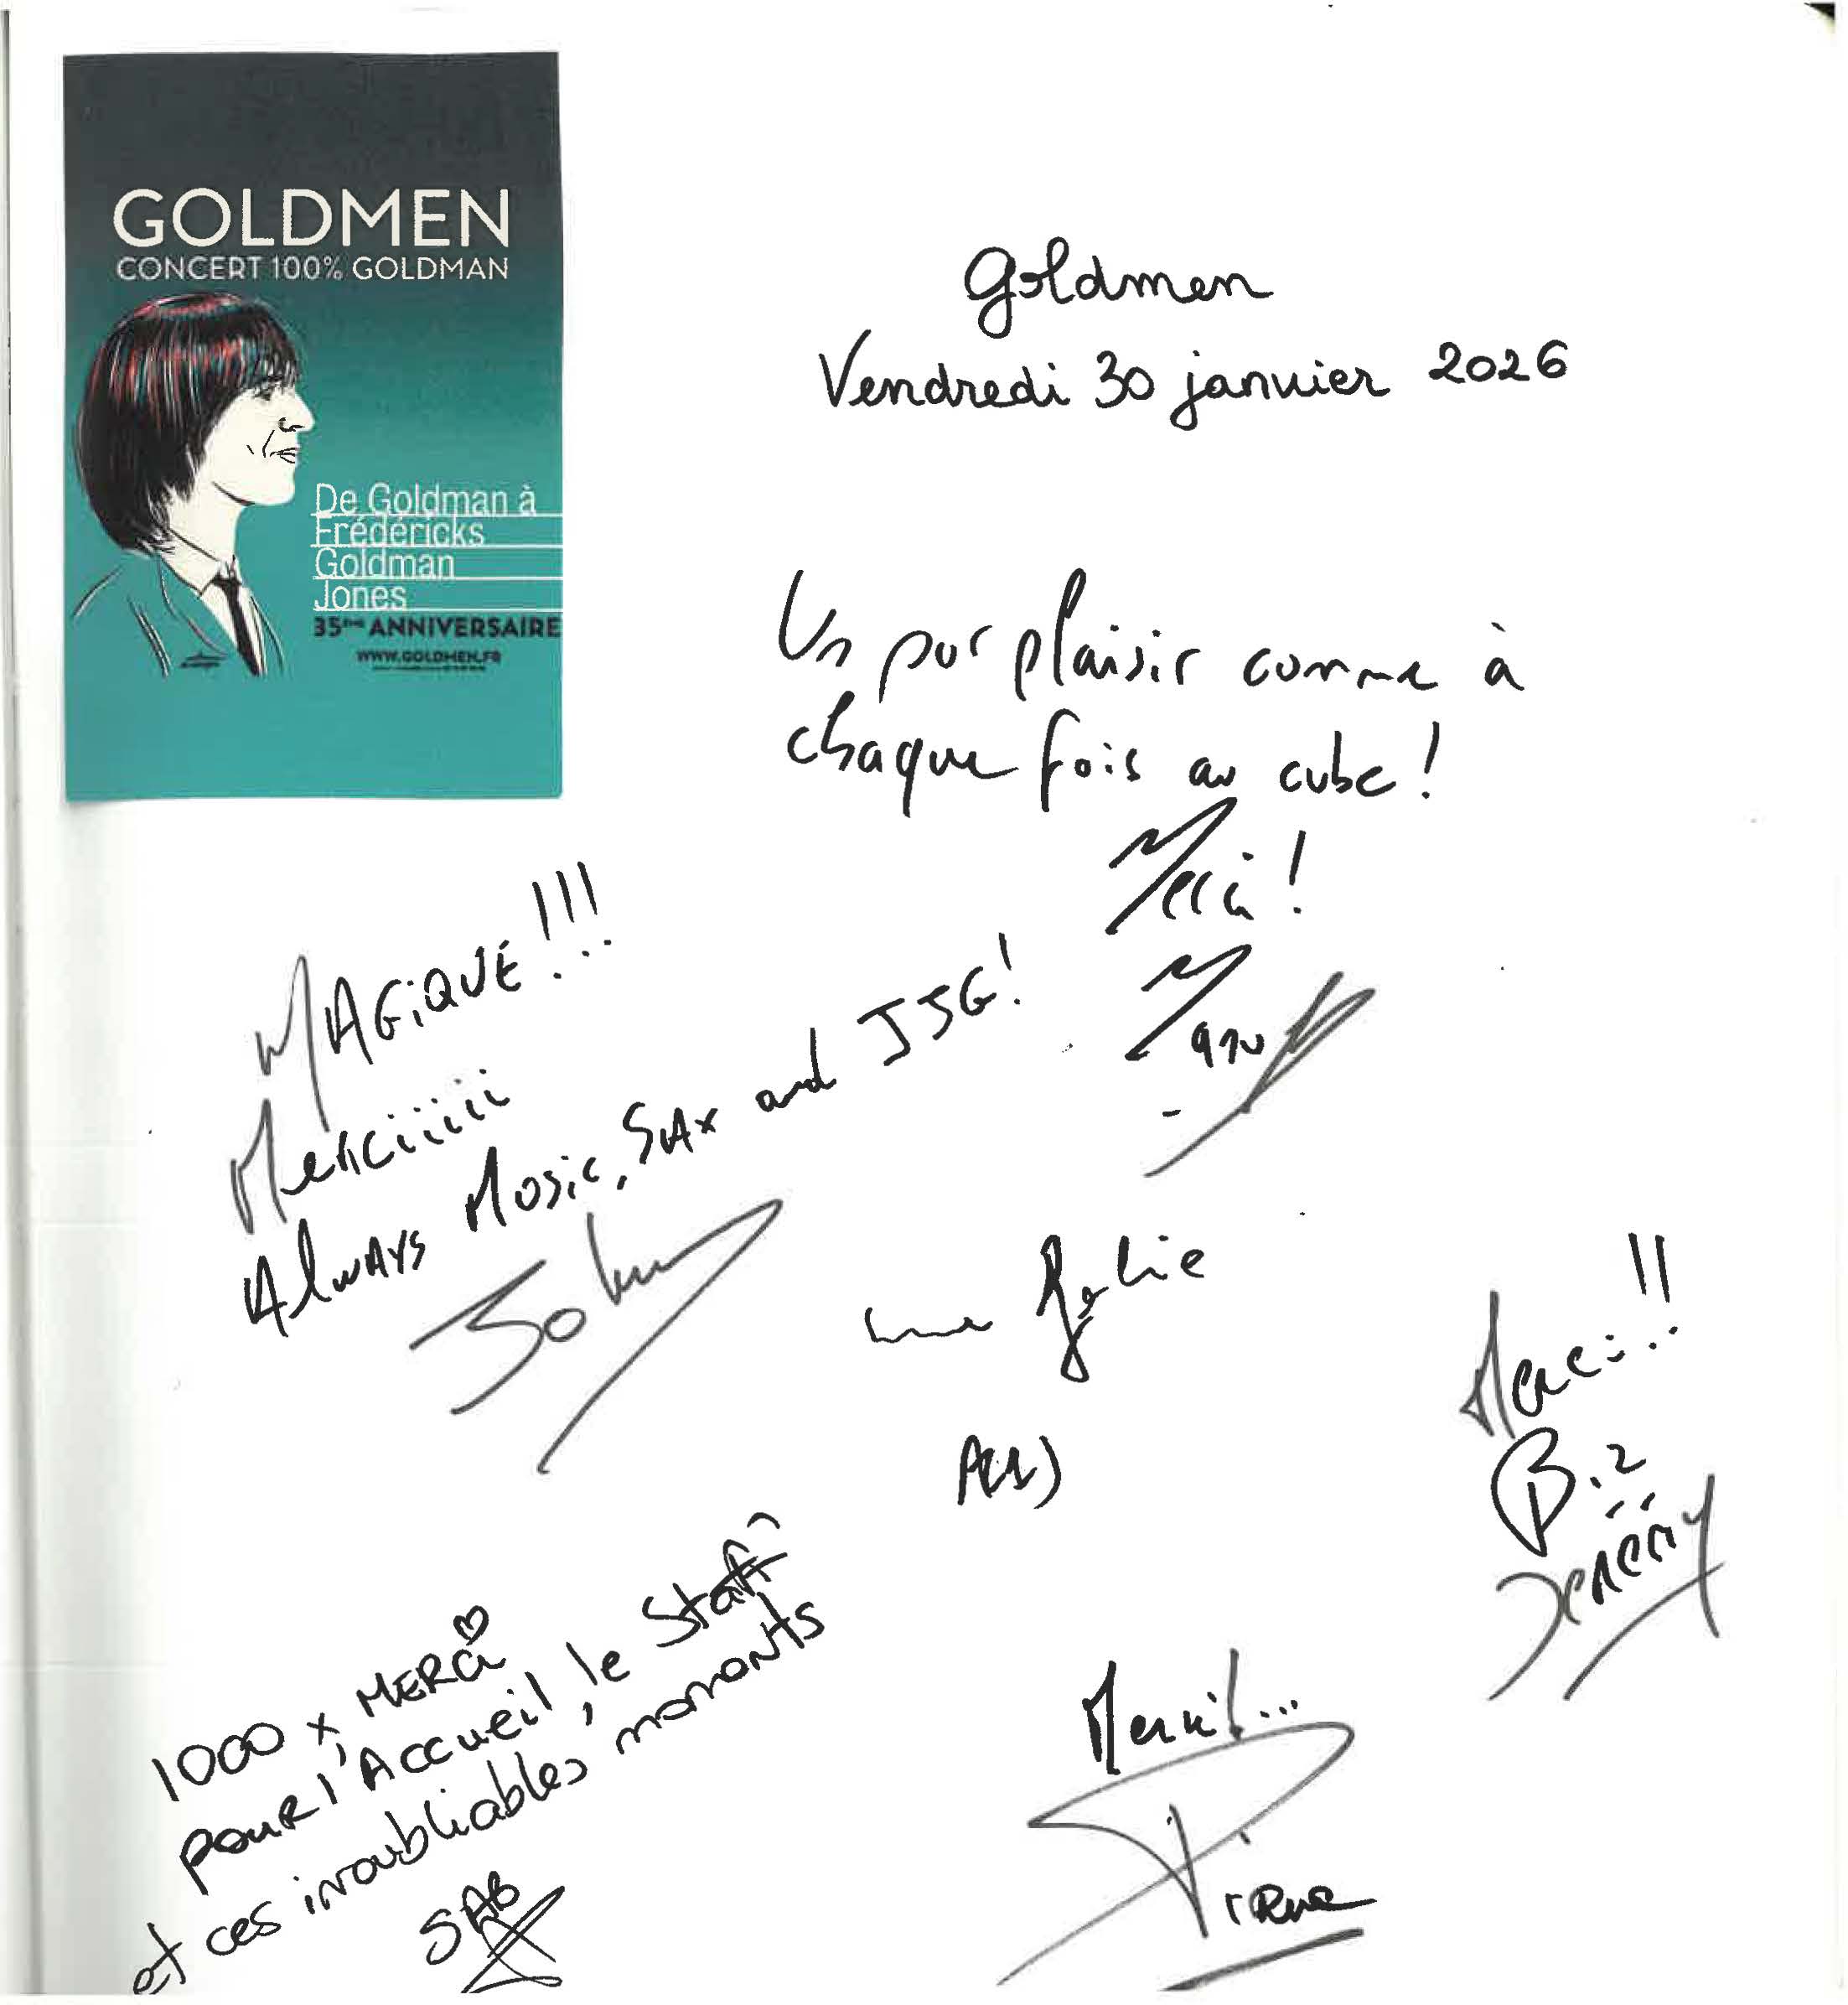 GOLDMEN
CONCERT 100% GOLDMAN
De Goldman à
Frédéricks
Goldman
Jones
35ème ANNIVERSAIRE
WWW.GOLDMEN.FR
Goldmen
Vendredi 30 janvier 2026
Un pur plaisir comme à
chaque fois au cube !
Merci !
Manu
MAGiQUE !!!
Merciiiii
Always Music, SAx and JJG !
Merci !!
Biz
Jérémy
1000 x MERCi
pour l'Accueil, le Staff
et ces inoubliables moments
SAB
Merci !...
Pierre